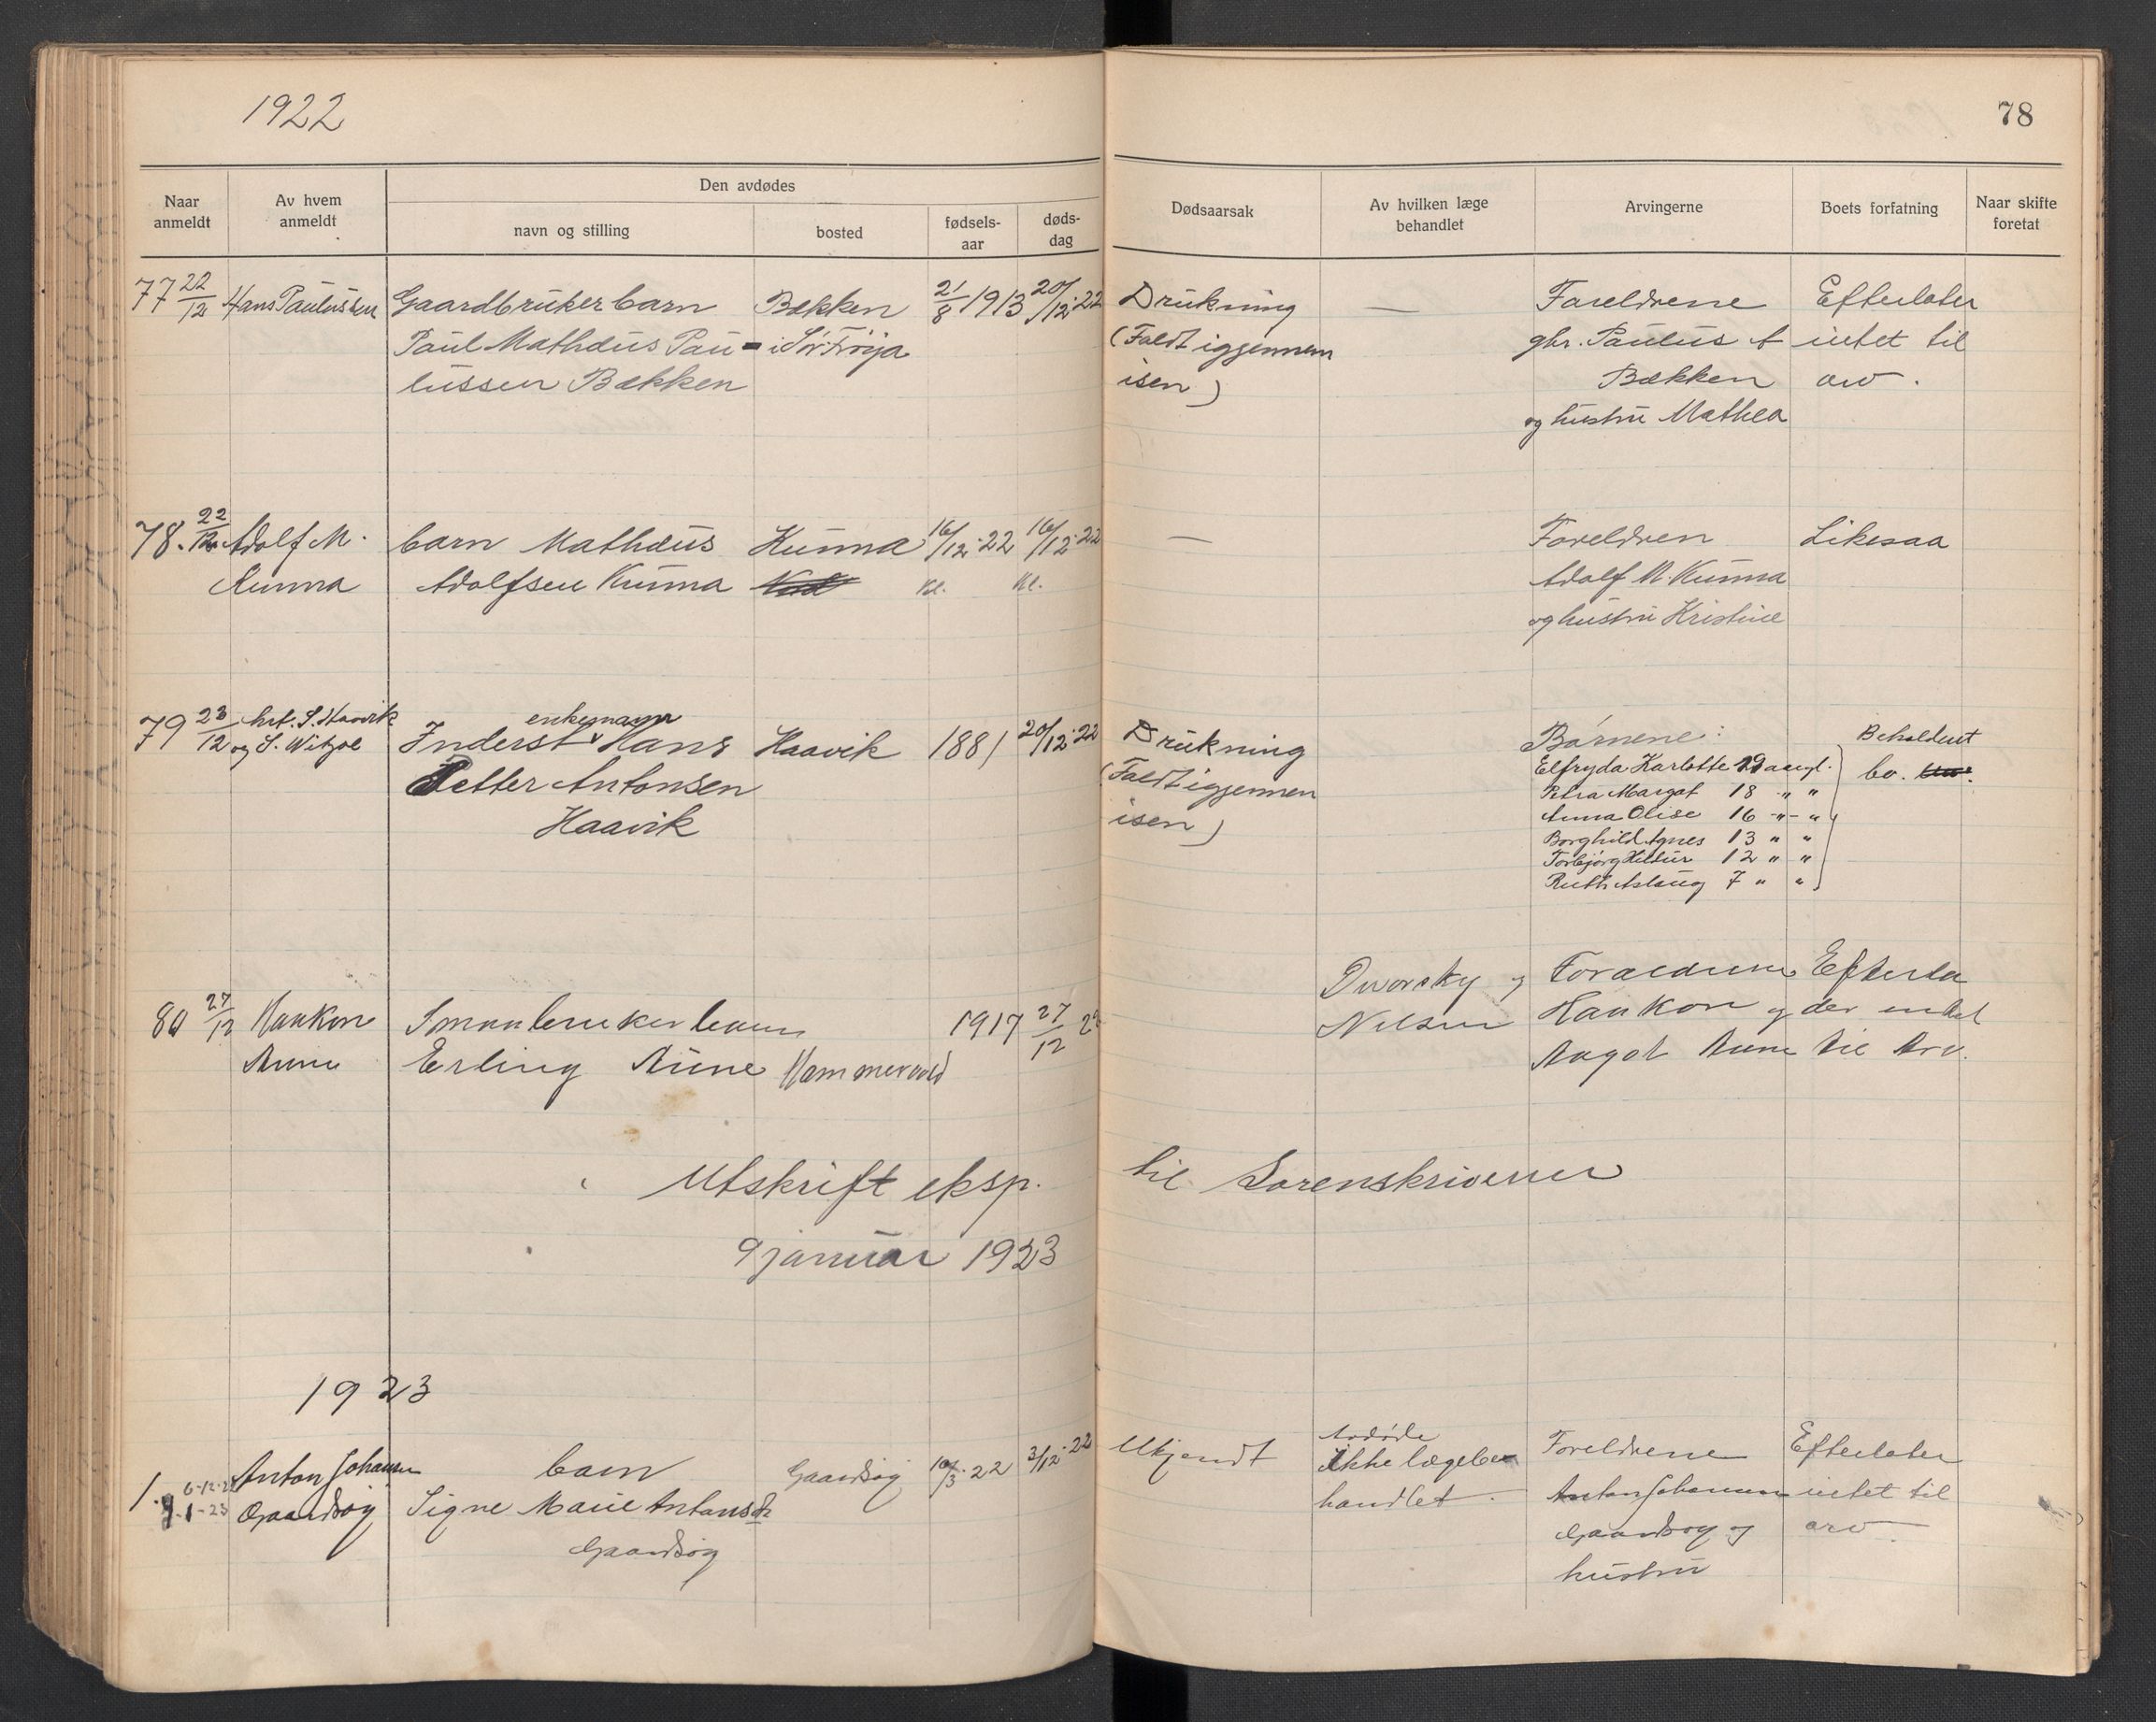 1922
78
Naar anmeldt
Av hvem anmeldt
Den avdødes
navn og stilling
bosted
fødsels-aar
døds-dag
Dødsaarsak
Av hvilken læge behandlet
Arvingerne
Boets forfatning
Naar skifte foretat
77 22/12 Hans Paulussen Gaardbruker barn Bekken 21/8 1913 20/12-22 Drukning — Foreldrene Efterlater
Paul Mathæus Pau- i Sør-Frøya (Faldt igjennem gbr. Paulus A intet til
lussen Bekken isen) Bekken arv.
og hustru Mathea
78. 22/12 Adolf M. barn Mathæus Kunna 16/12-22 16/12-22 — Foreldren Likesaa
Kunna Adolfsen Kunna Kl. Kl. Adolf M. Kunna
og hustru Kristine
79 23/12 hrt. S. Haavik enkemann
og S. Witzøe Inderst Hans Haavik 1881 20/12-22 Drukning Børnene: Beholdent
Petter Antonsen (Faldt igjennem Elfryda Karlotte 19 aar gl. bo.
Haavik isen) Petra Margot 18 " "
Anna Olise 16 -"- "
Borghild Agnes 13 " "
Torbjørg 12 " "
Ruth Aslaug 7 " "
80 27/12 Haakon Smaabruker barn 1917 27/12 22 Dworsky og Foraldrene Efterla
Aune Erling Aune Hammervold Nilsen Haakon og der intet
Aagot Aune til Arv.
Utskrift eksp. til Sorenskriveren
9 januar 1923
1923
1. 6-12-22 Anton Johansen barn Gaardsøy 10/3-22 3/12-22 Ukjendt Avdøde Foreldrene Efterlater
9-1-23 Gaardsøy Signe Marie Antonsdt. ikke lægebe- Anton Johansen intet til
Gaardsøy handlet. Gaardsøy og arv
hustru